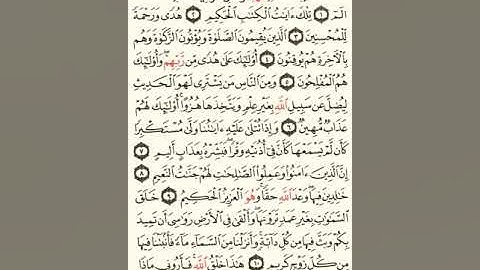 الٓمٓ ۝١ تِلۡكَ ءَايَٰتُ ٱلۡكِتَٰبِ ٱلۡحَكِيمِ ۝٢ هُدٗى وَرَحۡمَةٗ
لِّلۡمُحۡسِنِينَ ۝٣ ٱلَّذِينَ يُقِيمُونَ ٱلصَّلَوٰةَ وَيُؤۡتُونَ ٱلزَّكَوٰةَ وَهُم
بِٱلۡأٓخِرَةِ هُمۡ يُوقِنُونَ ۝٤ أُوْلَٰٓئِكَ عَلَىٰ هُدٗى مِّن رَّبِّهِمۡۖ وَأُوْلَٰٓئِكَ
هُمُ ٱلۡمُفۡلِحُونَ ۝٥ وَمِنَ ٱلنَّاسِ مَن يَشۡتَرِي لَهۡوَ ٱلۡحَدِيثِ
لِيُضِلَّ عَن سَبِيلِ ٱللَّهِ بِغَيۡرِ عِلۡمٖ وَيَتَّخِذَهَا هُزُوًاۚ أُوْلَٰٓئِكَ لَهُمۡ
عَذَابٞ مُّهِينٞ ۝٦ وَإِذَا تُتۡلَىٰ عَلَيۡهِ ءَايَٰتُنَا وَلَّىٰ مُسۡتَكۡبِرٗا
كَأَن لَّمۡ يَسۡمَعۡهَا كَأَنَّ فِيٓ أُذُنَيۡهِ وَقۡرٗاۖ فَبَشِّرۡهُ بِعَذَابٍ أَلِيمٍ ۝٧
إِنَّ ٱلَّذِينَ ءَامَنُواْ وَعَمِلُواْ ٱلصَّٰلِحَٰتِ لَهُمۡ جَنَّٰتُ ٱلنَّعِيمِ ۝٨
خَٰلِدِينَ فِيهَاۖ وَعۡدَ ٱللَّهِ حَقّٗاۚ وَهُوَ ٱلۡعَزِيزُ ٱلۡحَكِيمُ ۝٩ خَلَقَ
ٱلسَّمَٰوَٰتِ بِغَيۡرِ عَمَدٖ تَرَوۡنَهَاۖ وَأَلۡقَىٰ فِي ٱلۡأَرۡضِ رَوَٰسِيَ أَن تَمِيدَ
بِكُمۡ وَبَثَّ فِيهَا مِن كُلِّ دَآبَّةٖۚ وَأَنزَلۡنَا مِنَ ٱلسَّمَآءِ مَآءٗ فَأَنۢبَتۡنَا فِيهَا
مِن كُلِّ زَوۡجٖ كَرِيمٍ ۝١٠ هَٰذَا خَلۡقُ ٱللَّهِ فَأَرُونِي مَاذَا